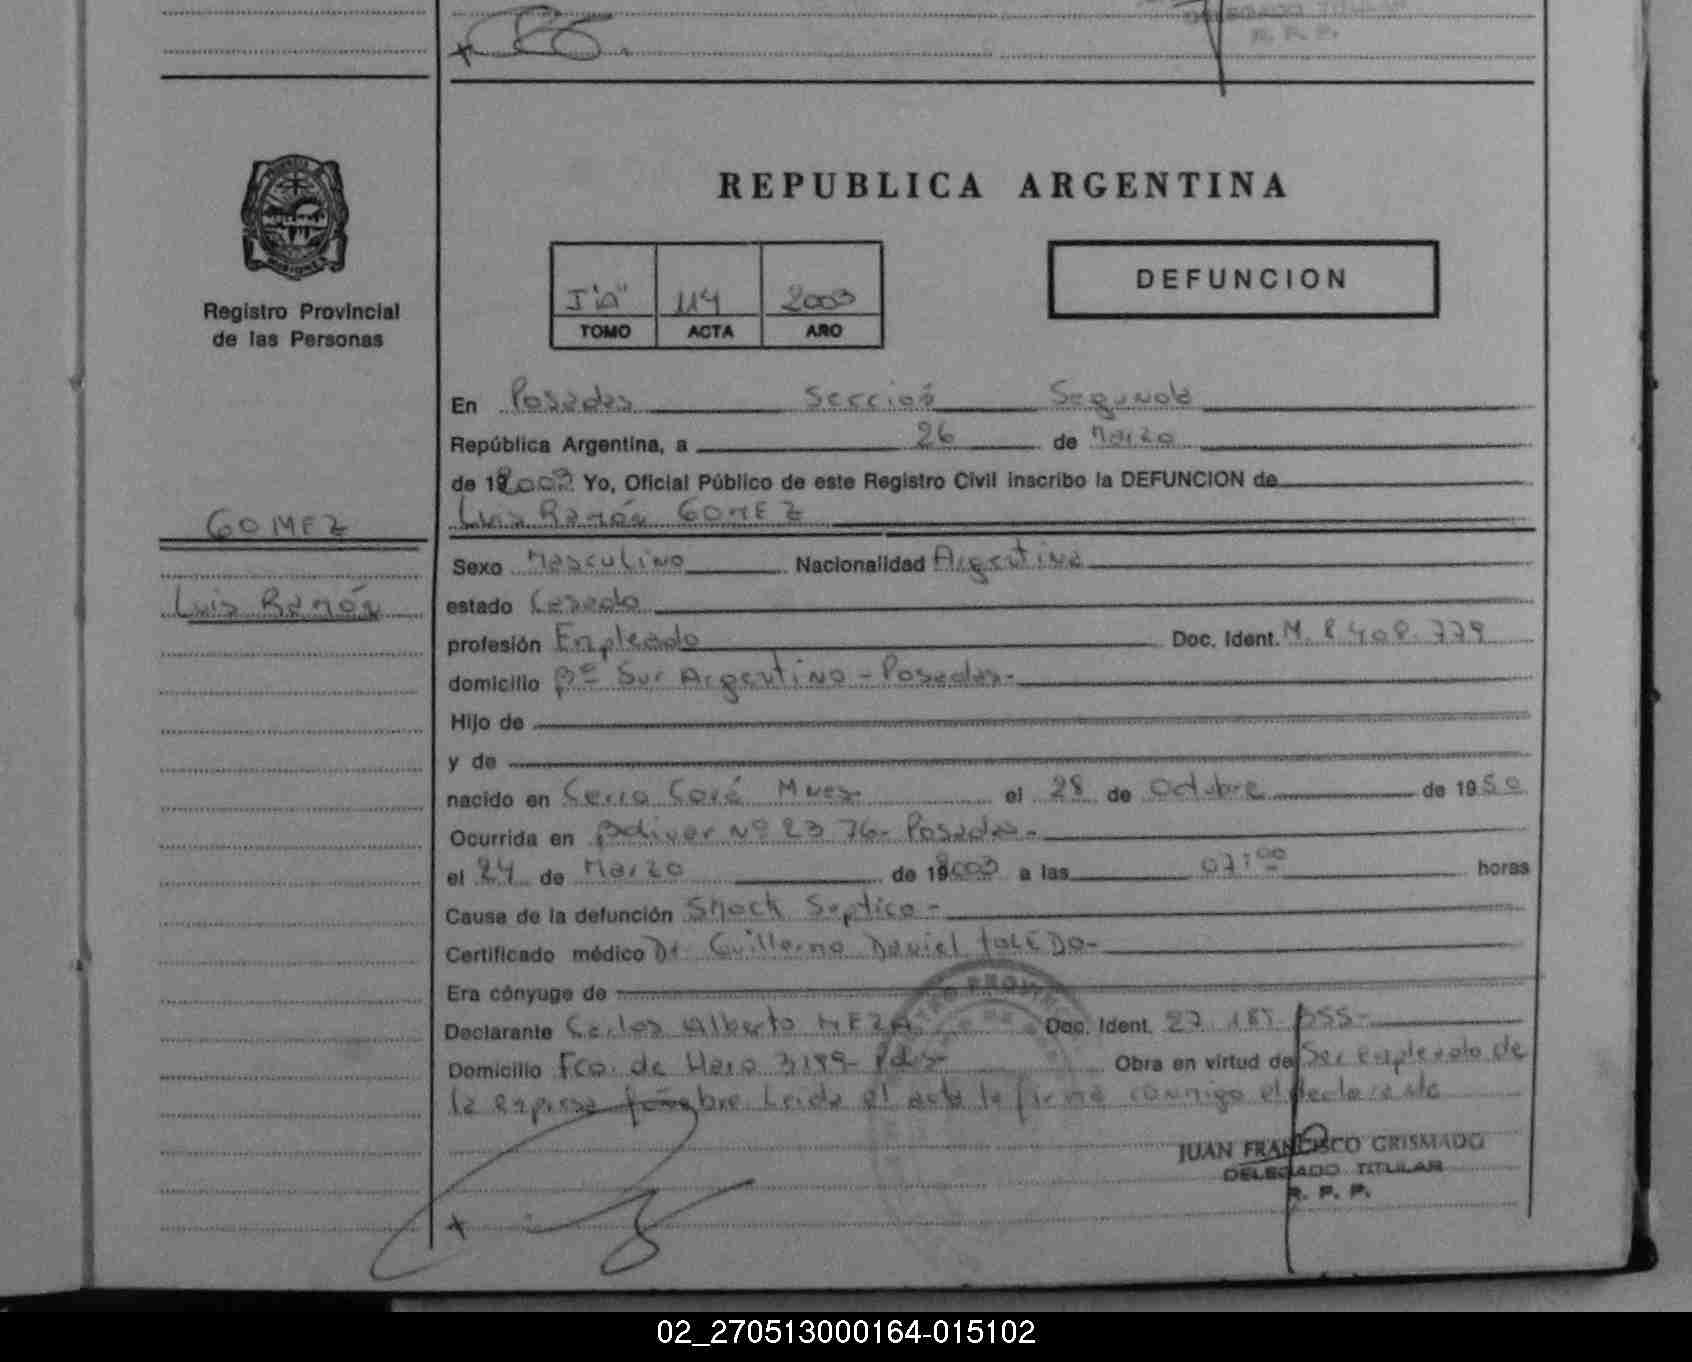 DELEGADO TITULAR
R. P. P.
REPUBLICA ARGENTINA
I "A" 114 2003
TOMO ACTA AÑO
DEFUNCION
Registro Provincial
de las Personas
En Posadas Sección Segunda
República Argentina, a 26 de Marzo
de 192003 Yo, Oficial Público de este Registro Civil inscribo la DEFUNCION de
Luis Ramón GOMEZ
GOMEZ
Luis Ramón
Sexo Masculino Nacionalidad Argentina
estado Casado
profesión Empleado Doc. Ident. M. 8.408.779
domicilio Bº Sur Argentino - Posadas-
Hijo de
y de
nacido en Cerro Corá Mnes- el 28 de Octubre de 1950
Ocurrida en Bolivar Nº 2376- Posadas-
el 24 de Marzo de 192003 a las 07:00 horas
Causa de la defunción Shock Septico-
Certificado médico Dr Guillermo Daniel TOLEDO-
Era cónyuge de
Declarante Carlos Alberto MEZA Doc. Ident. 27.187.355-
Domicilio Fco. de Haro 3199- Pdas- Obra en virtud de Ser empleado de
la empresa fúnebre Leida el acta la firma conmigo el declarante
JUAN FRANCISCO GRISMADO
DELEGADO TITULAR
R. P. P.
02_270513000164-015102